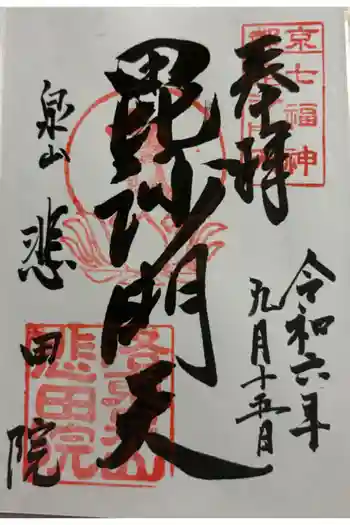 奉拝
令和六年
九月十五日
毘沙門天
泉山
悲田院
京七福神
悲田院